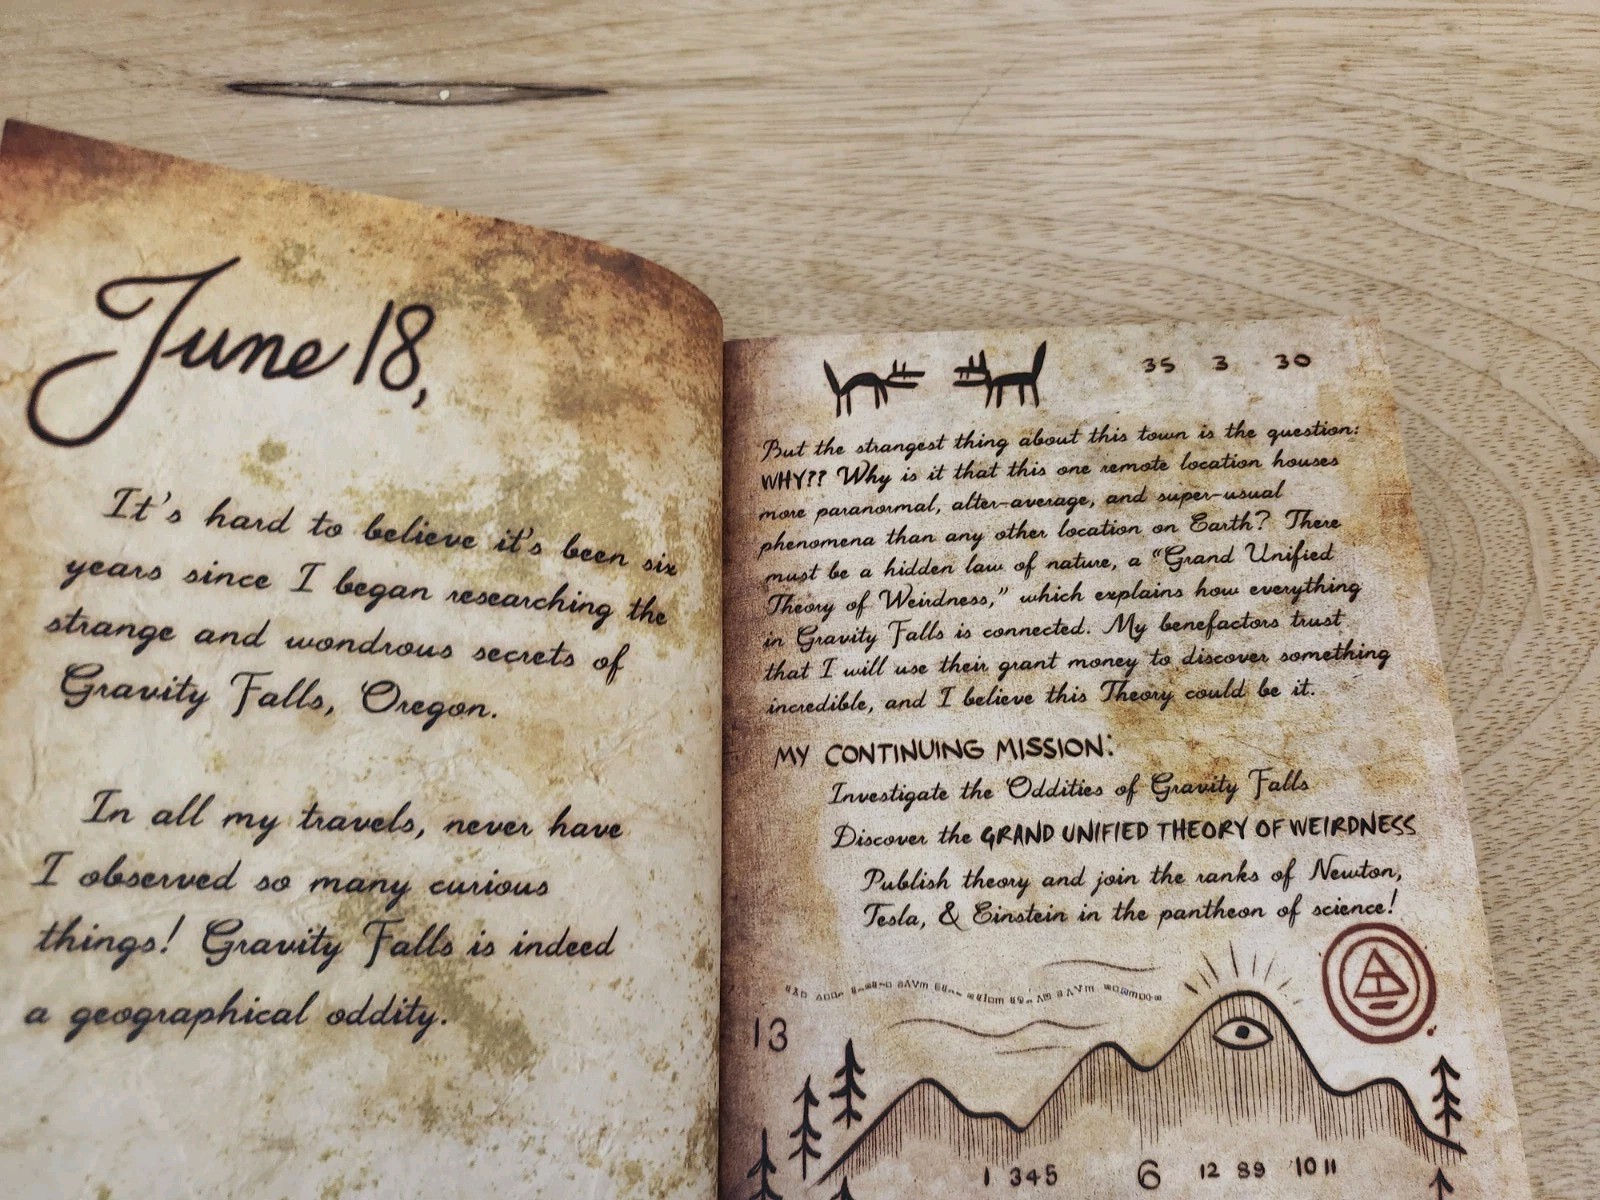 June 18,
It's hard to believe it's been six
years since I began researching the
strange and wondrous secrets of
Gravity Falls, Oregon.
In all my travels, never have
I observed so many curious
things! Gravity Falls is indeed
a geographical oddity.
35 3 30
But the strangest thing about this town is the question:
WHY?? Why is it that this one remote location houses
more paranormal, alter-average, and super-usual
phenomena than any other location on Earth? There
must be a hidden law of nature, a "Grand Unified
Theory of Weirdness," which explains how everything
in Gravity Falls is connected. My benefactors trust
that I will use their grant money to discover something
incredible, and I believe this Theory could be it.
MY CONTINUING MISSION:
Investigate the Oddities of Gravity Falls
Discover the GRAND UNIFIED THEORY OF WEIRDNESS
Publish theory and join the ranks of Newton,
Tesla, & Einstein in the pantheon of science!
13
1 345 6 12 89 10 11